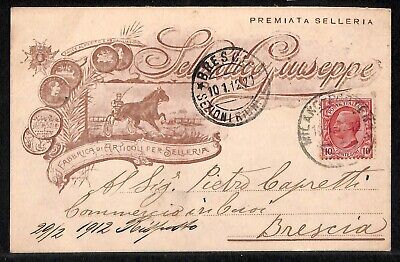 PREMIATA SELLERIA
Giuseppe
BRESCIA
10.1.12.
FABBRICA DI ARTICOLI PER SELLERIA
MILANO
10 10
Al Sig. Pietro Capretti
Commercio in Cuoi
Brescia
29/2 1912 Risposto